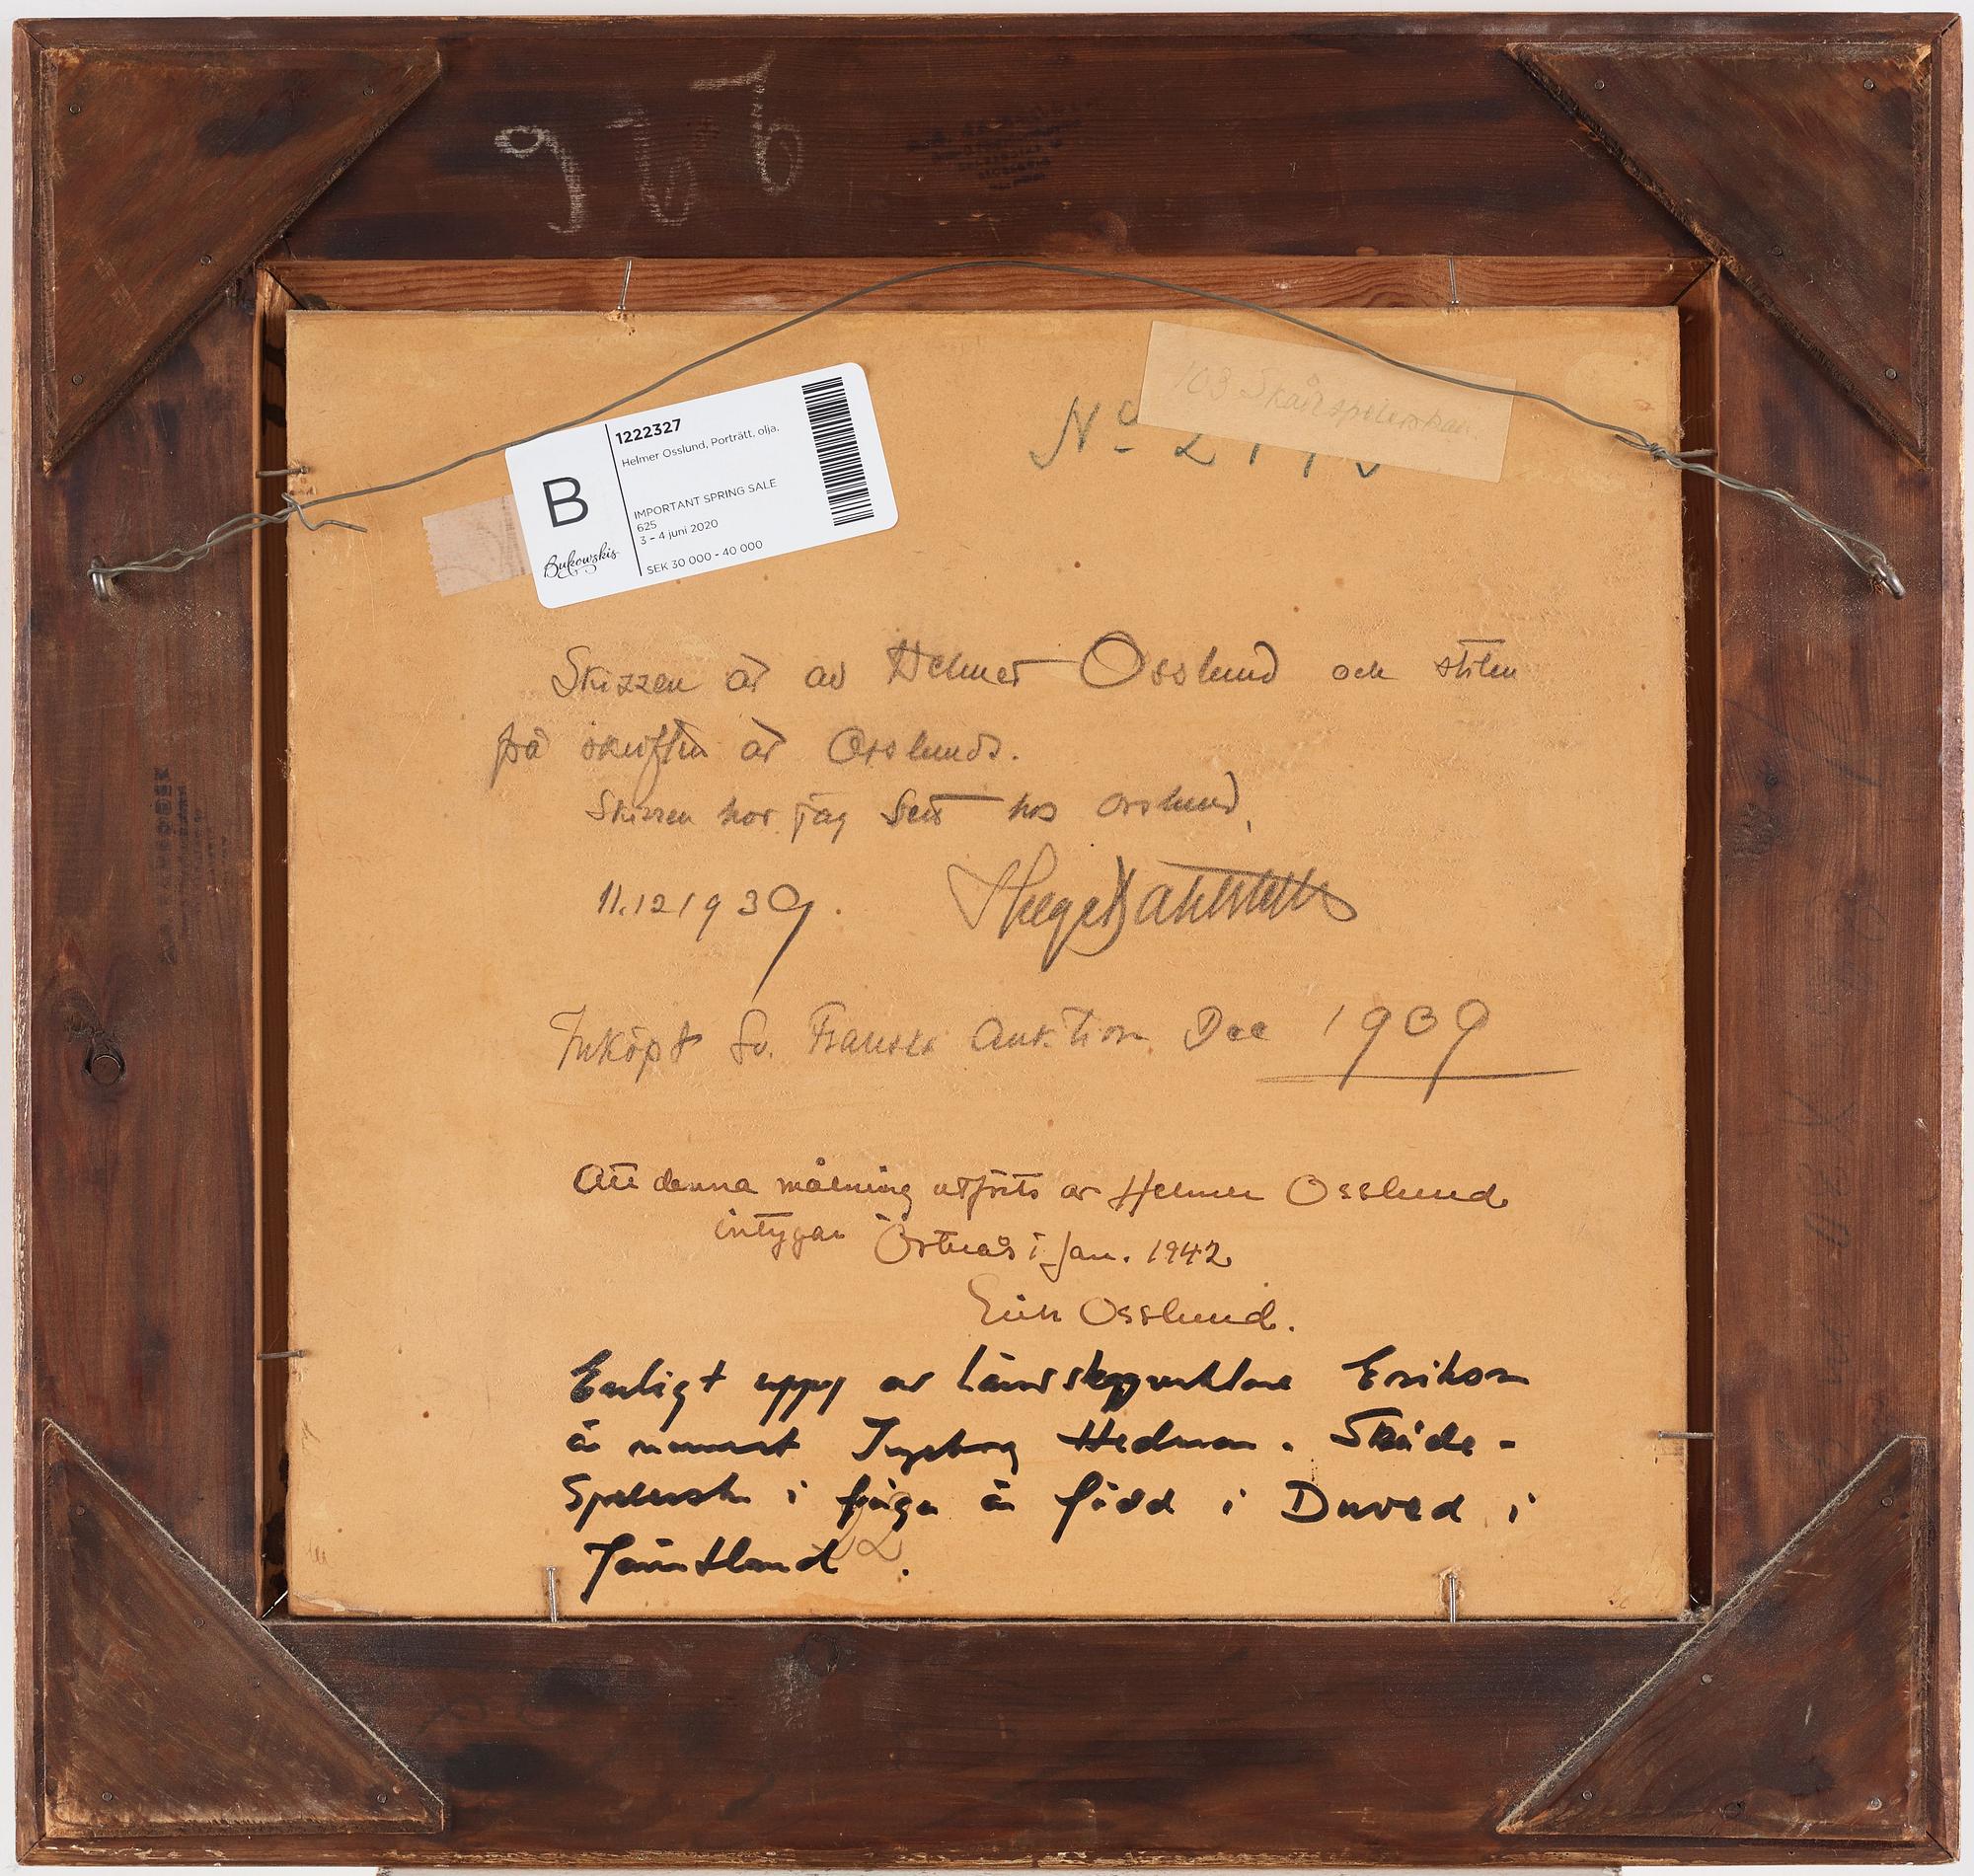 1222327
Helmer Osslund, Porträtt, olja.
IMPORTANT SPRING SALE
625
3 - 4 juni 2020
SEK 30 000 - 40 000
B
Bukowskis
103 Skådespelerskan.
No
Skizzen är av Helmer Osslund och stilen
på är Osslunds.
Skizzen har jag sett hos Osslund,
11.12 1939.
Inköpt Sv. Franska Auktion Dec 1939
Att denna målning utförts av Helmer Osslund
intygar Östnår i Jan. 1942
Erik Osslund.
Enligt uppg av Erikson
är numret Ingeborg Hedman. Skåde-
spelersk i fråga är född i Duved i
Jämtland.
22